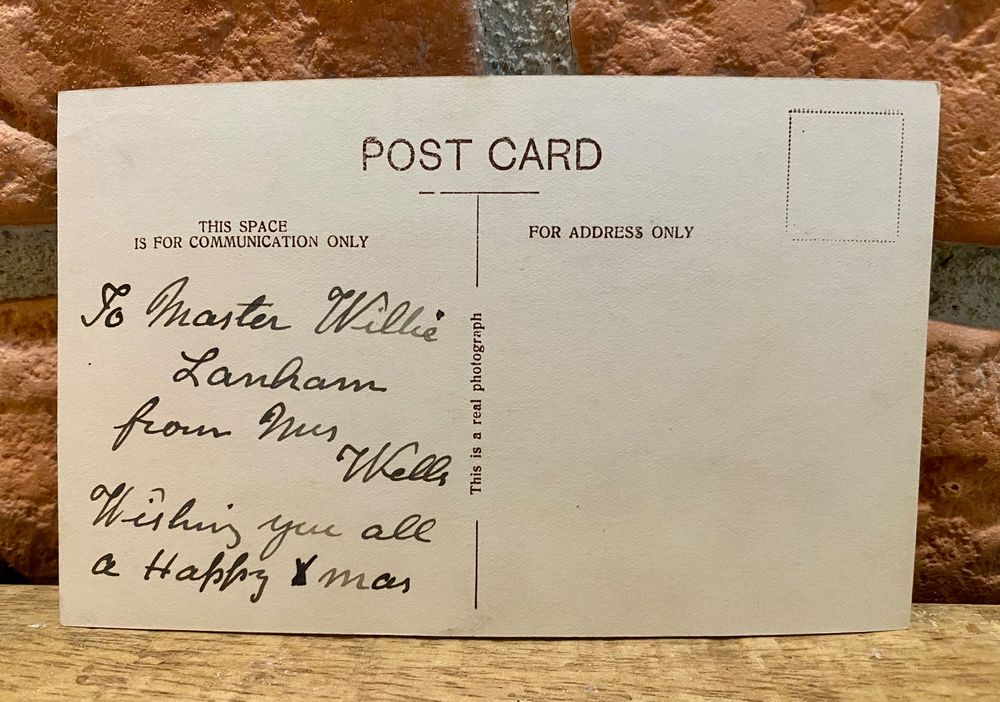 POST CARD
THIS SPACE
IS FOR COMMUNICATION ONLY
FOR ADDRESS ONLY
To Master Willie
Lanham
from Mrs
Wells
Wishing you all
a Happy Xmas
This is a real photograph